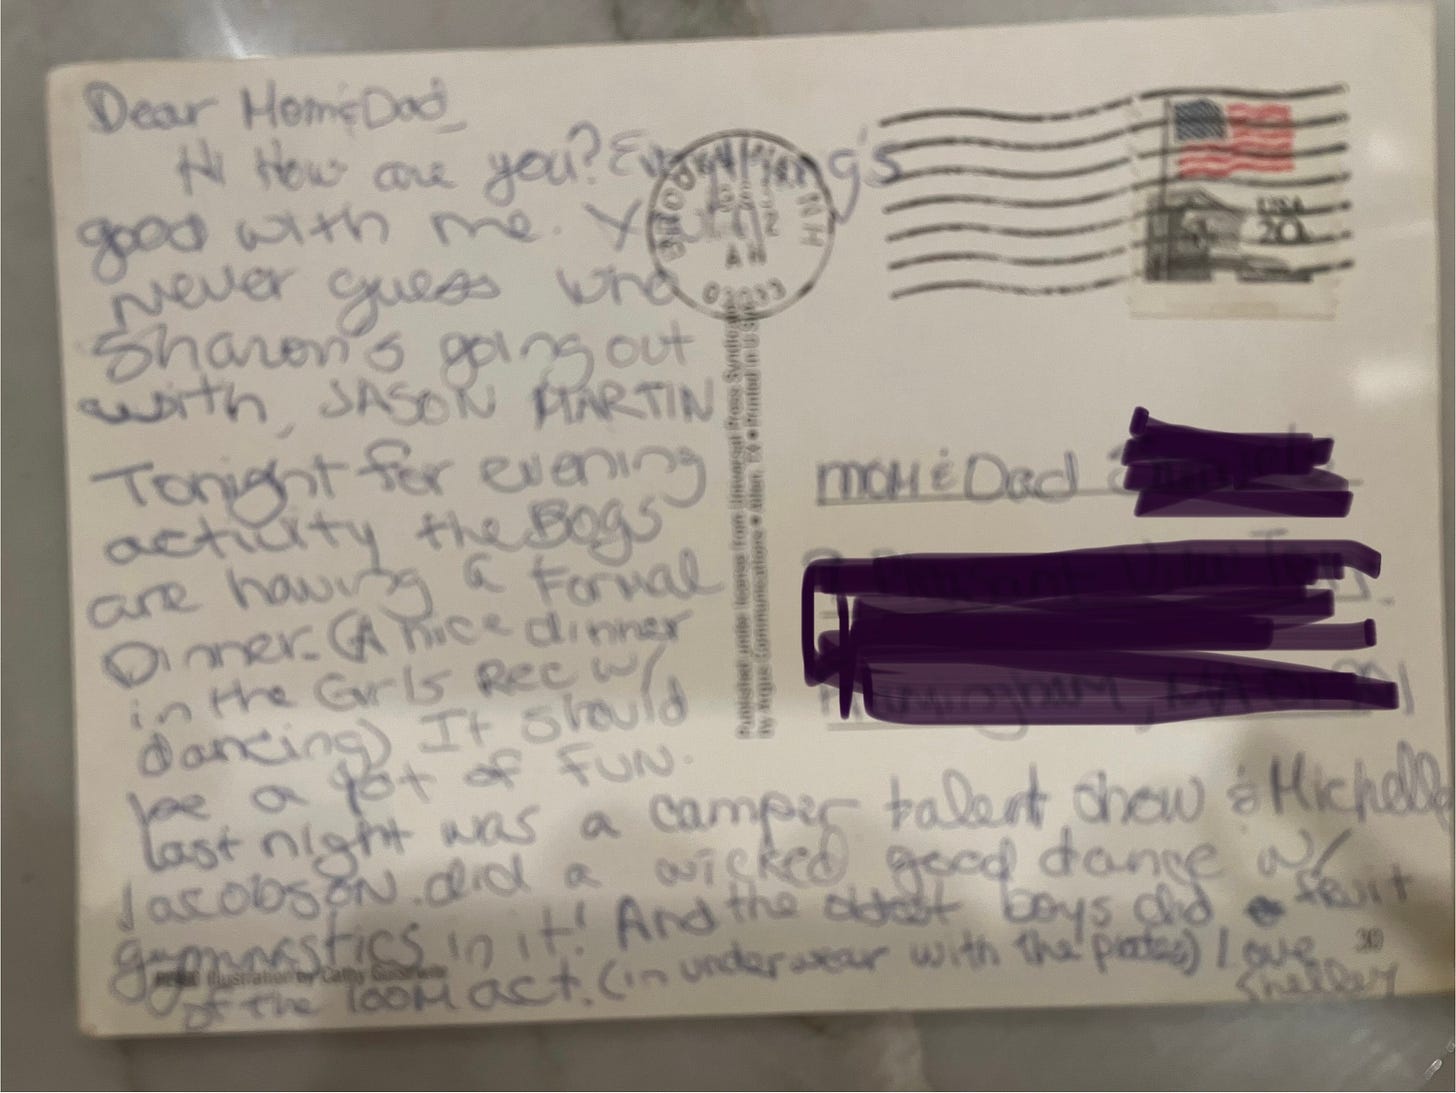 Dear Mom & Dad,
Hi How are you? Everything's
good with me. You'll
never guess who
Sharon's going out
with, JASON MARTIN
Tonight for evening
activity the Bogs
are having a Formal
Dinner. (A nice dinner
in the Girls Rec w/
dancing) It should
be a lot of FUN.
Last night was a camper talent show & Michelle
Jacobson did a wicked good dance w/
gymnastics in it! And the oldest boys did fruit
of the loom act. (in underwear with the plates) Love
Shelley
Illustration by Cathy Guisewite
Published under license from Universal Press Syndicate
by Argus Communications • Allen, TX • Printed in U.S.A.
BROOKLINE NH
AM
03033
USA
20c
MOM & Dad